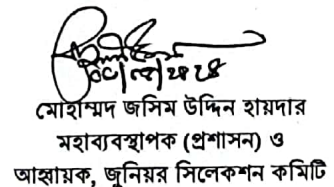 মোহাম্মদ জসিম উদ্দিন হায়দার
মহাব্যবস্থাপক (প্রশাসন) ও
আহ্বায়ক, জুনিয়র সিলেকশন কমিটি